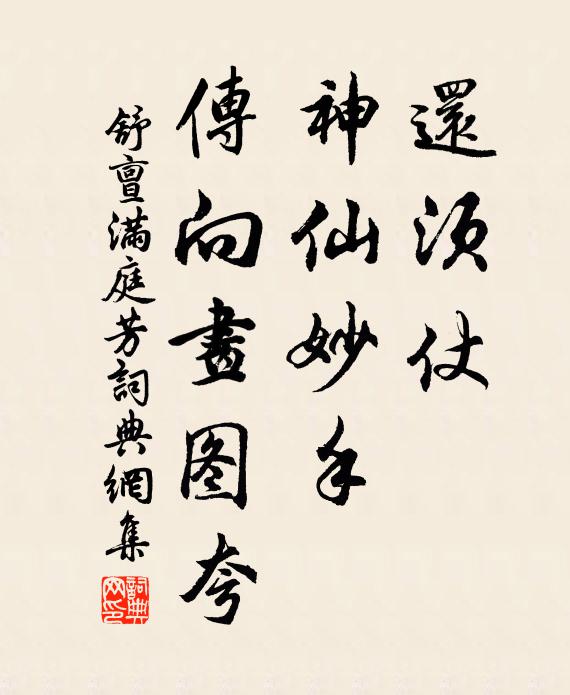 還須仗
神仙妙手
傳向畫图夸
舒亶滿庭芳詞典網集
詞典网印